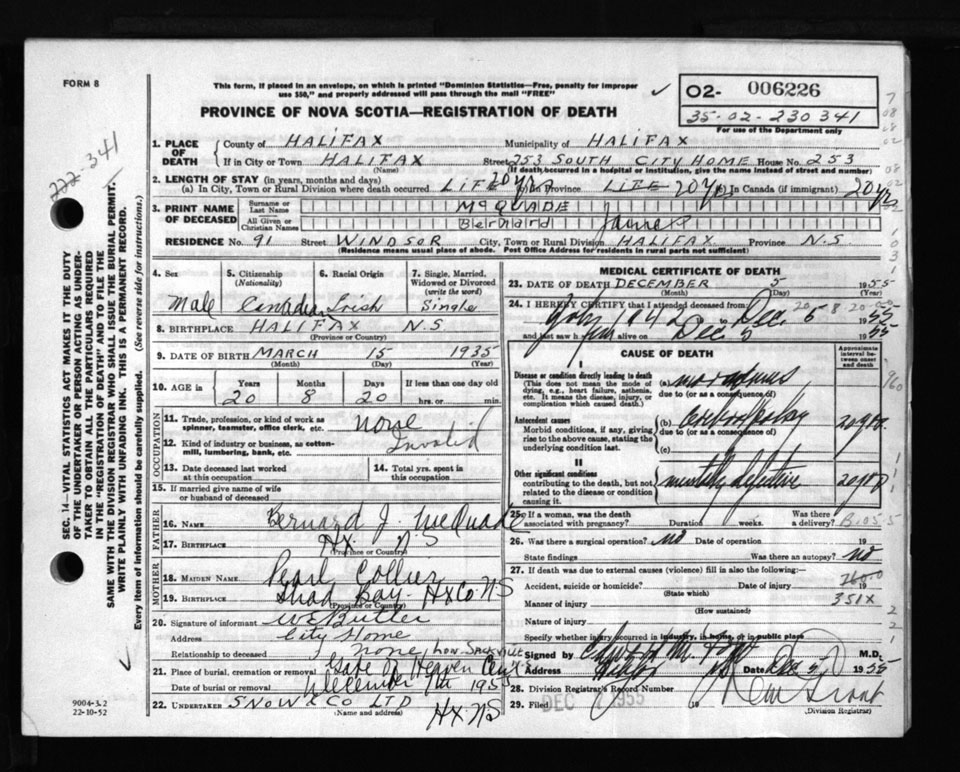 FORM 8
This form, if placed in an envelope, on which is printed "Dominion Statistics—Free, penalty for improper
use $50," and properly addressed will pass through the mail "FREE"
PROVINCE OF NOVA SCOTIA—REGISTRATION OF DEATH
02- 006226
35-02-230341
For use of the Department only
222-341
SEC. 14—VITAL STATISTICS ACT MAKES IT THE DUTY
OF THE UNDERTAKER OR PERSON ACTING AS UNDER-
TAKER TO OBTAIN ALL THE PARTICULARS REQUIRED
IN THE "REGISTRATION OF DEATH" AND TO FILE THE
SAME WITH THE DIVISION REGISTRAR WHO SHALL ISSUE THE BURIAL PERMIT.
WRITE PLAINLY WITH UNFADING INK. THIS IS A PERMANENT RECORD.
Every item of information should be carefully supplied. (See reverse side for instructions.)
1. PLACE OF DEATH County of HALIFAX Municipality of HALIFAX
If in City or Town HALIFAX Street 253 SOUTH CITY HOME House No. 253
(Name) (If death occurred in a hospital or institution, give the name instead of street and number)
2. LENGTH OF STAY (in years, months and days)
(a) In City, Town or Rural Division where death occurred LIFE 20 yrs (b) In Province LIFE 20 yrs (c) In Canada (if immigrant) 20 yrs
3. PRINT NAME OF DECEASED Surname or Last Name McQUADE
All Given or Christian Names Bernard James
RESIDENCE No. 91 Street WINDSOR City, Town or Rural Division HALIFAX Province N.S
(Residence means usual place of abode. Post Office Address for residents in rural parts not sufficient)
4. Sex 5. Citizenship (Nationality) 6. Racial Origin 7. Single, Married, Widowed or Divorced (write the word)
Male Canadian Irish Single
8. BIRTHPLACE HALIFAX N.S
(Province or Country)
9. DATE OF BIRTH MARCH 15 1935
(Month) (Day) (Year)
10. AGE in Years Months Days If less than one day old
20 8 20 hrs. or min.
OCCUPATION
11. Trade, profession, or kind of work as spinner, teamster, office clerk, etc. none
12. Kind of industry or business, as cotton-mill, lumbering, bank, etc. Invalid
13. Date deceased last worked at this occupation
14. Total yrs. spent in this occupation
15. If married give name of wife or husband of deceased
FATHER
16. NAME Bernard J. McQuade
17. BIRTHPLACE Hx. N.S
(Province or Country)
MOTHER
18. MAIDEN NAME Pearl Collier
19. BIRTHPLACE Shad Bay Hx Co NS
(Province or Country)
20. Signature of informant W E Butler
Address City Home
Relationship to deceased none
21. Place of burial, cremation or removal Gate of Heaven Cem. Low. Sackville
Date of burial or removal December 7th 1955
22. UNDERTAKER SNOW & CO LTD Hx. NS
(Name and address)
9004-3.2
22-10-52
MEDICAL CERTIFICATE OF DEATH
23. DATE OF DEATH DECEMBER 5 1955
(Month) (Day) (Year)
24. I HEREBY CERTIFY that I attended deceased from 1942 to Dec. 5 1955
and last saw him alive on Dec 5 1955
CAUSE OF DEATH
Approximate interval between onset and death
I
Disease or condition directly leading to death
(This does not mean the mode of dying, e.g., heart failure, asthenia, etc. It means the disease, injury, or complication which caused death.)
(a) marasmus
due to (or as a consequence of)
Antecedent causes
Morbid conditions, if any, giving rise to the above cause, stating the underlying condition last.
(b)
due to (or as a consequence of)
(c)
II
Other significant conditions
contributing to the death, but not related to the disease or condition causing it.
mentally defective
25. If a woman, was the death associated with pregnancy? Duration weeks. Was there a delivery?
26. Was there a surgical operation? no Date of operation
State findings Was there an autopsy? no
27. If death was due to external causes (violence) fill in also the following:
Accident, suicide or homicide? Date of injury 19
(State which)
Manner of injury 351X
(How sustained)
Nature of injury
Specify whether injury occurred in industry, in home, or in public place
Signed by M.D.
Address Halifax NS Date Dec 5 1955
28. Division Registrar's Record Number
29. Filed DEC 7 1955 19
(Division Registrar)